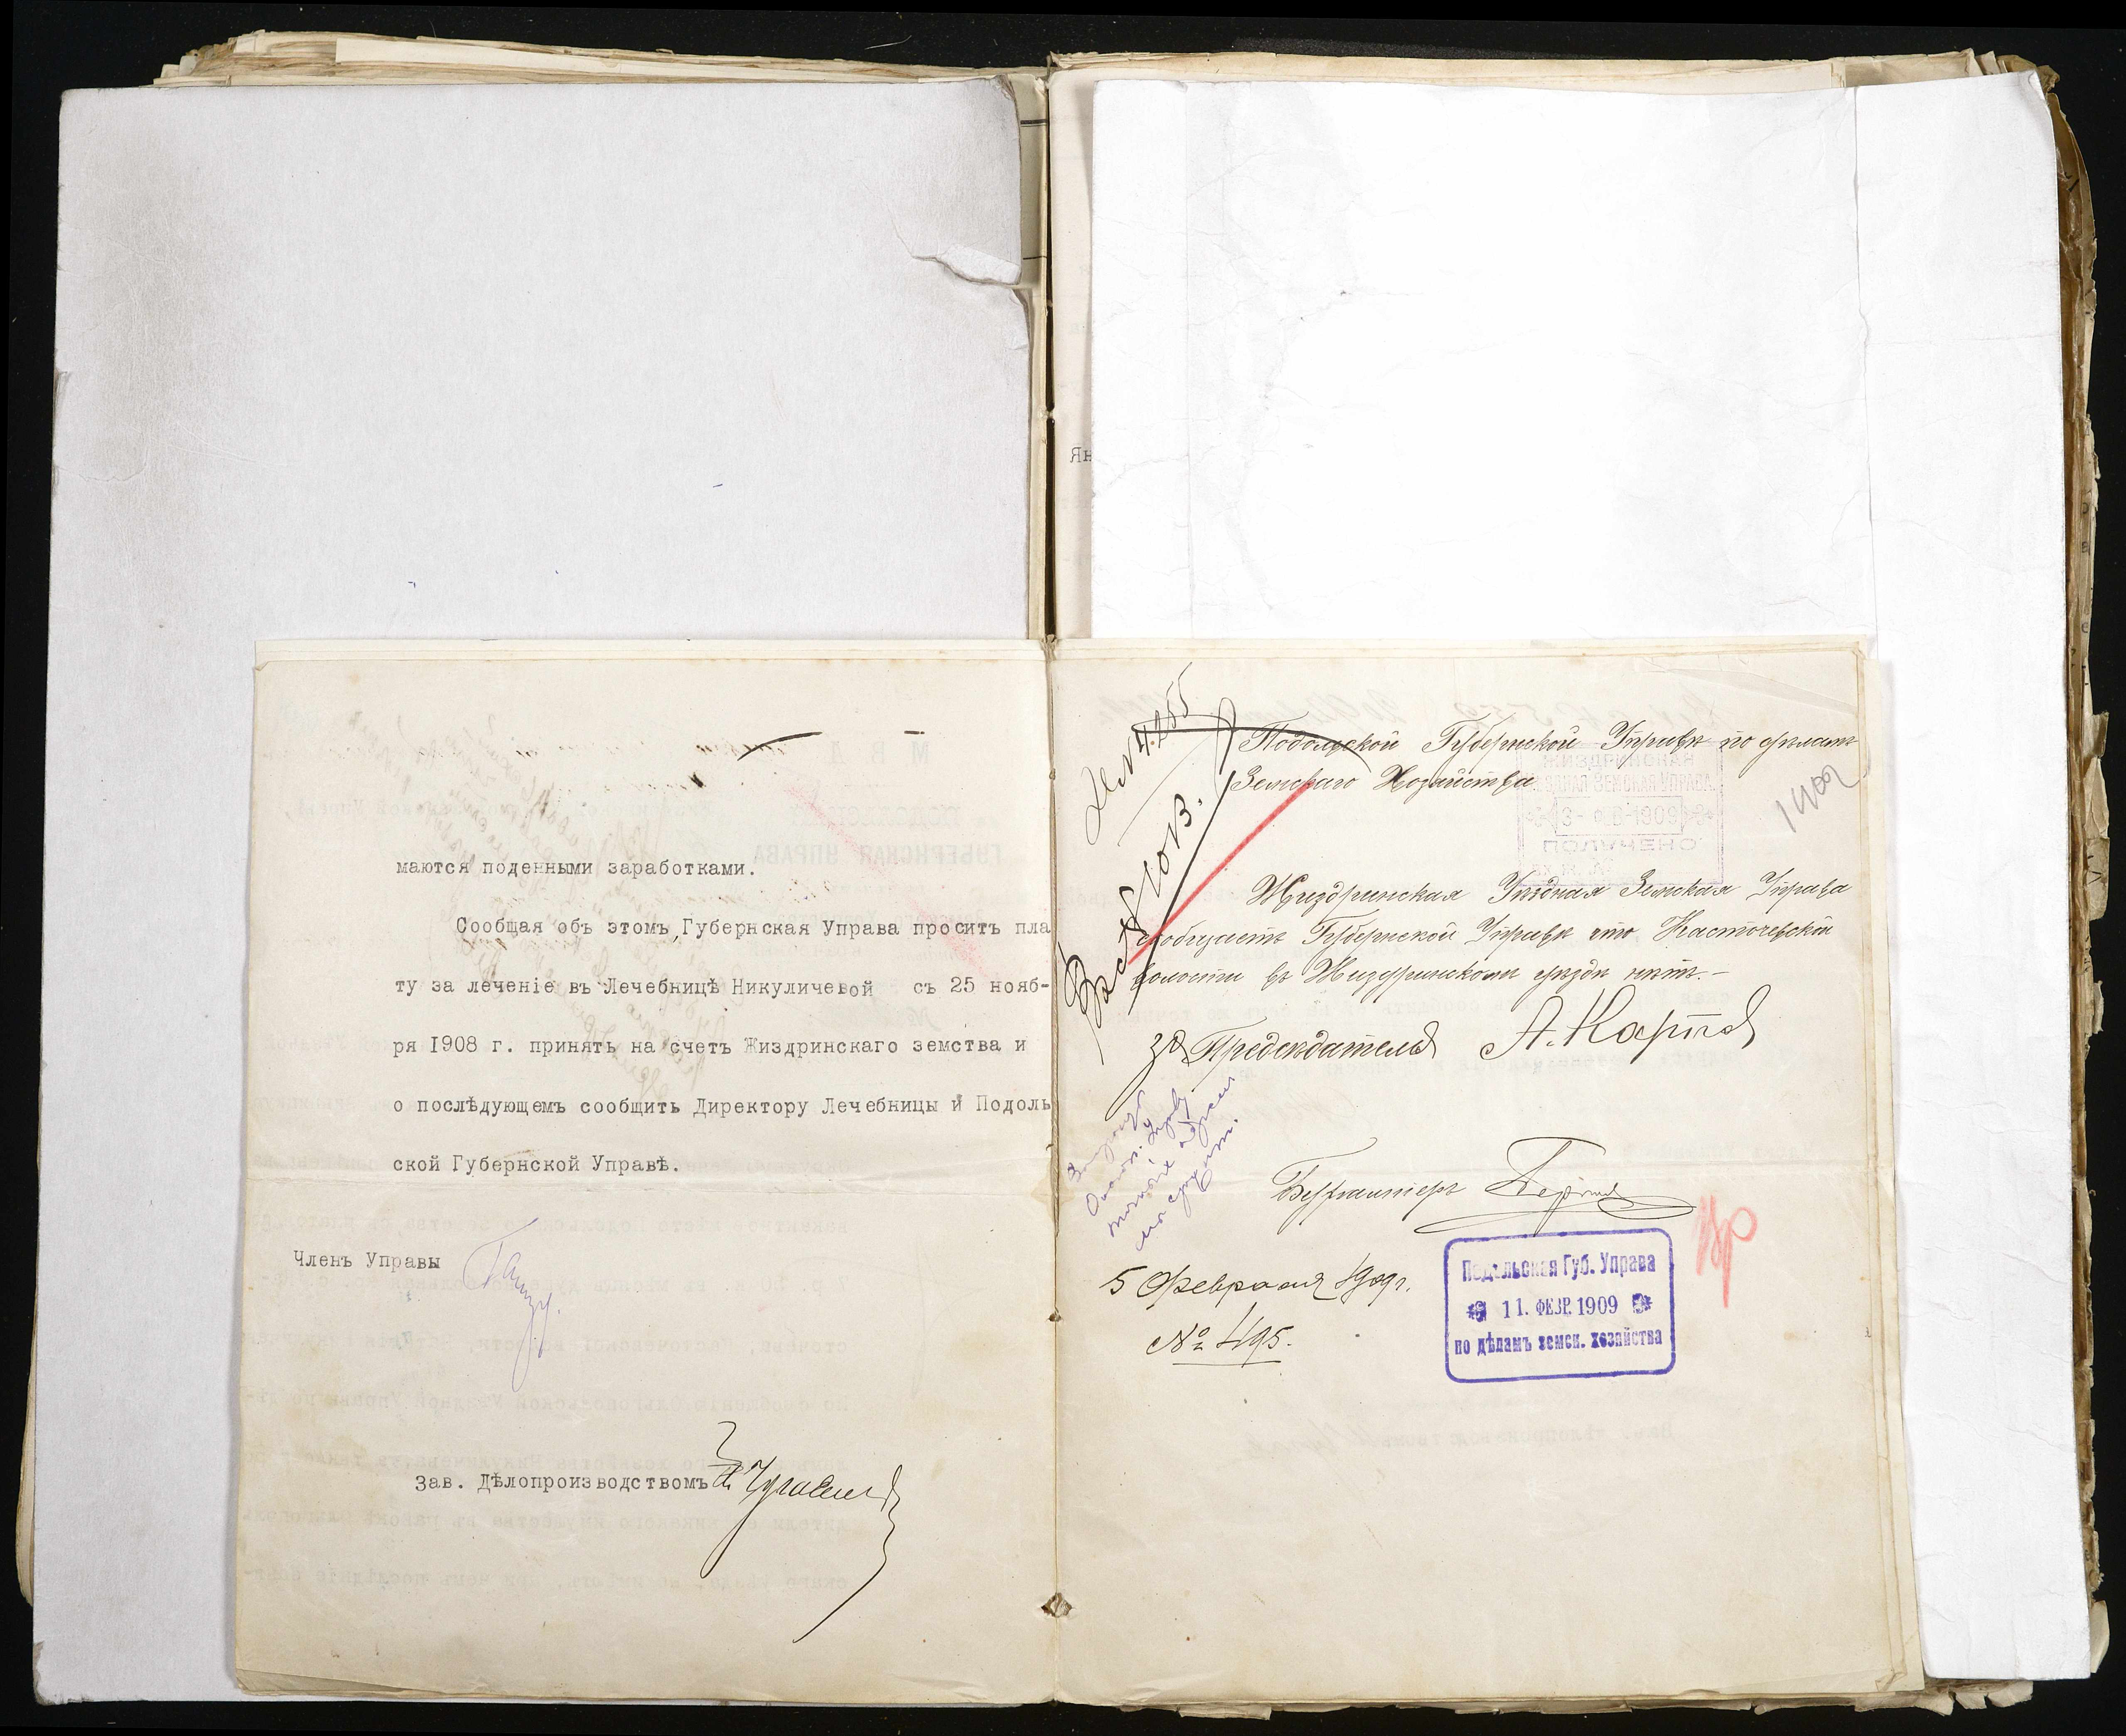 маются поденными заработками.
Сообщая объ этомъ, Губернская Управа проситъ пла
ту за лечение въ Лечебницѣ Никуличевой съ 25 нояб-
ря 1908 г. принять на счетъ Жиздринскаго земства и
о послѣдующемъ сообщить Директору Лечебницы и Подоль
ской Губернской Управѣ.
Членъ Управы
Зав. Дѣлопроизводствомъ
Ян
Подольской Губернской Управѣ по дѣламъ
Земскаго Хозяйства
ЖИЗДРИНСКАЯ
УѢЗДНАЯ ЗЕМСКАЯ УПРАВА
3 - ФЕВ-1909
ПОЛУЧЕНО
Жиздринская Уѣздная Земская Управа
сообщаетъ Губернской Управѣ что Касточевской
волости въ Жиздринскомъ уѣздѣ нѣтъ.-
За Предсѣдателя А. Карпов
Бухгалтеръ
5 Февраля 1909 г.
№ 495.
Подольская Губ. Управа
11. ФЕВР. 1909
по дѣламъ земск. хозяйства